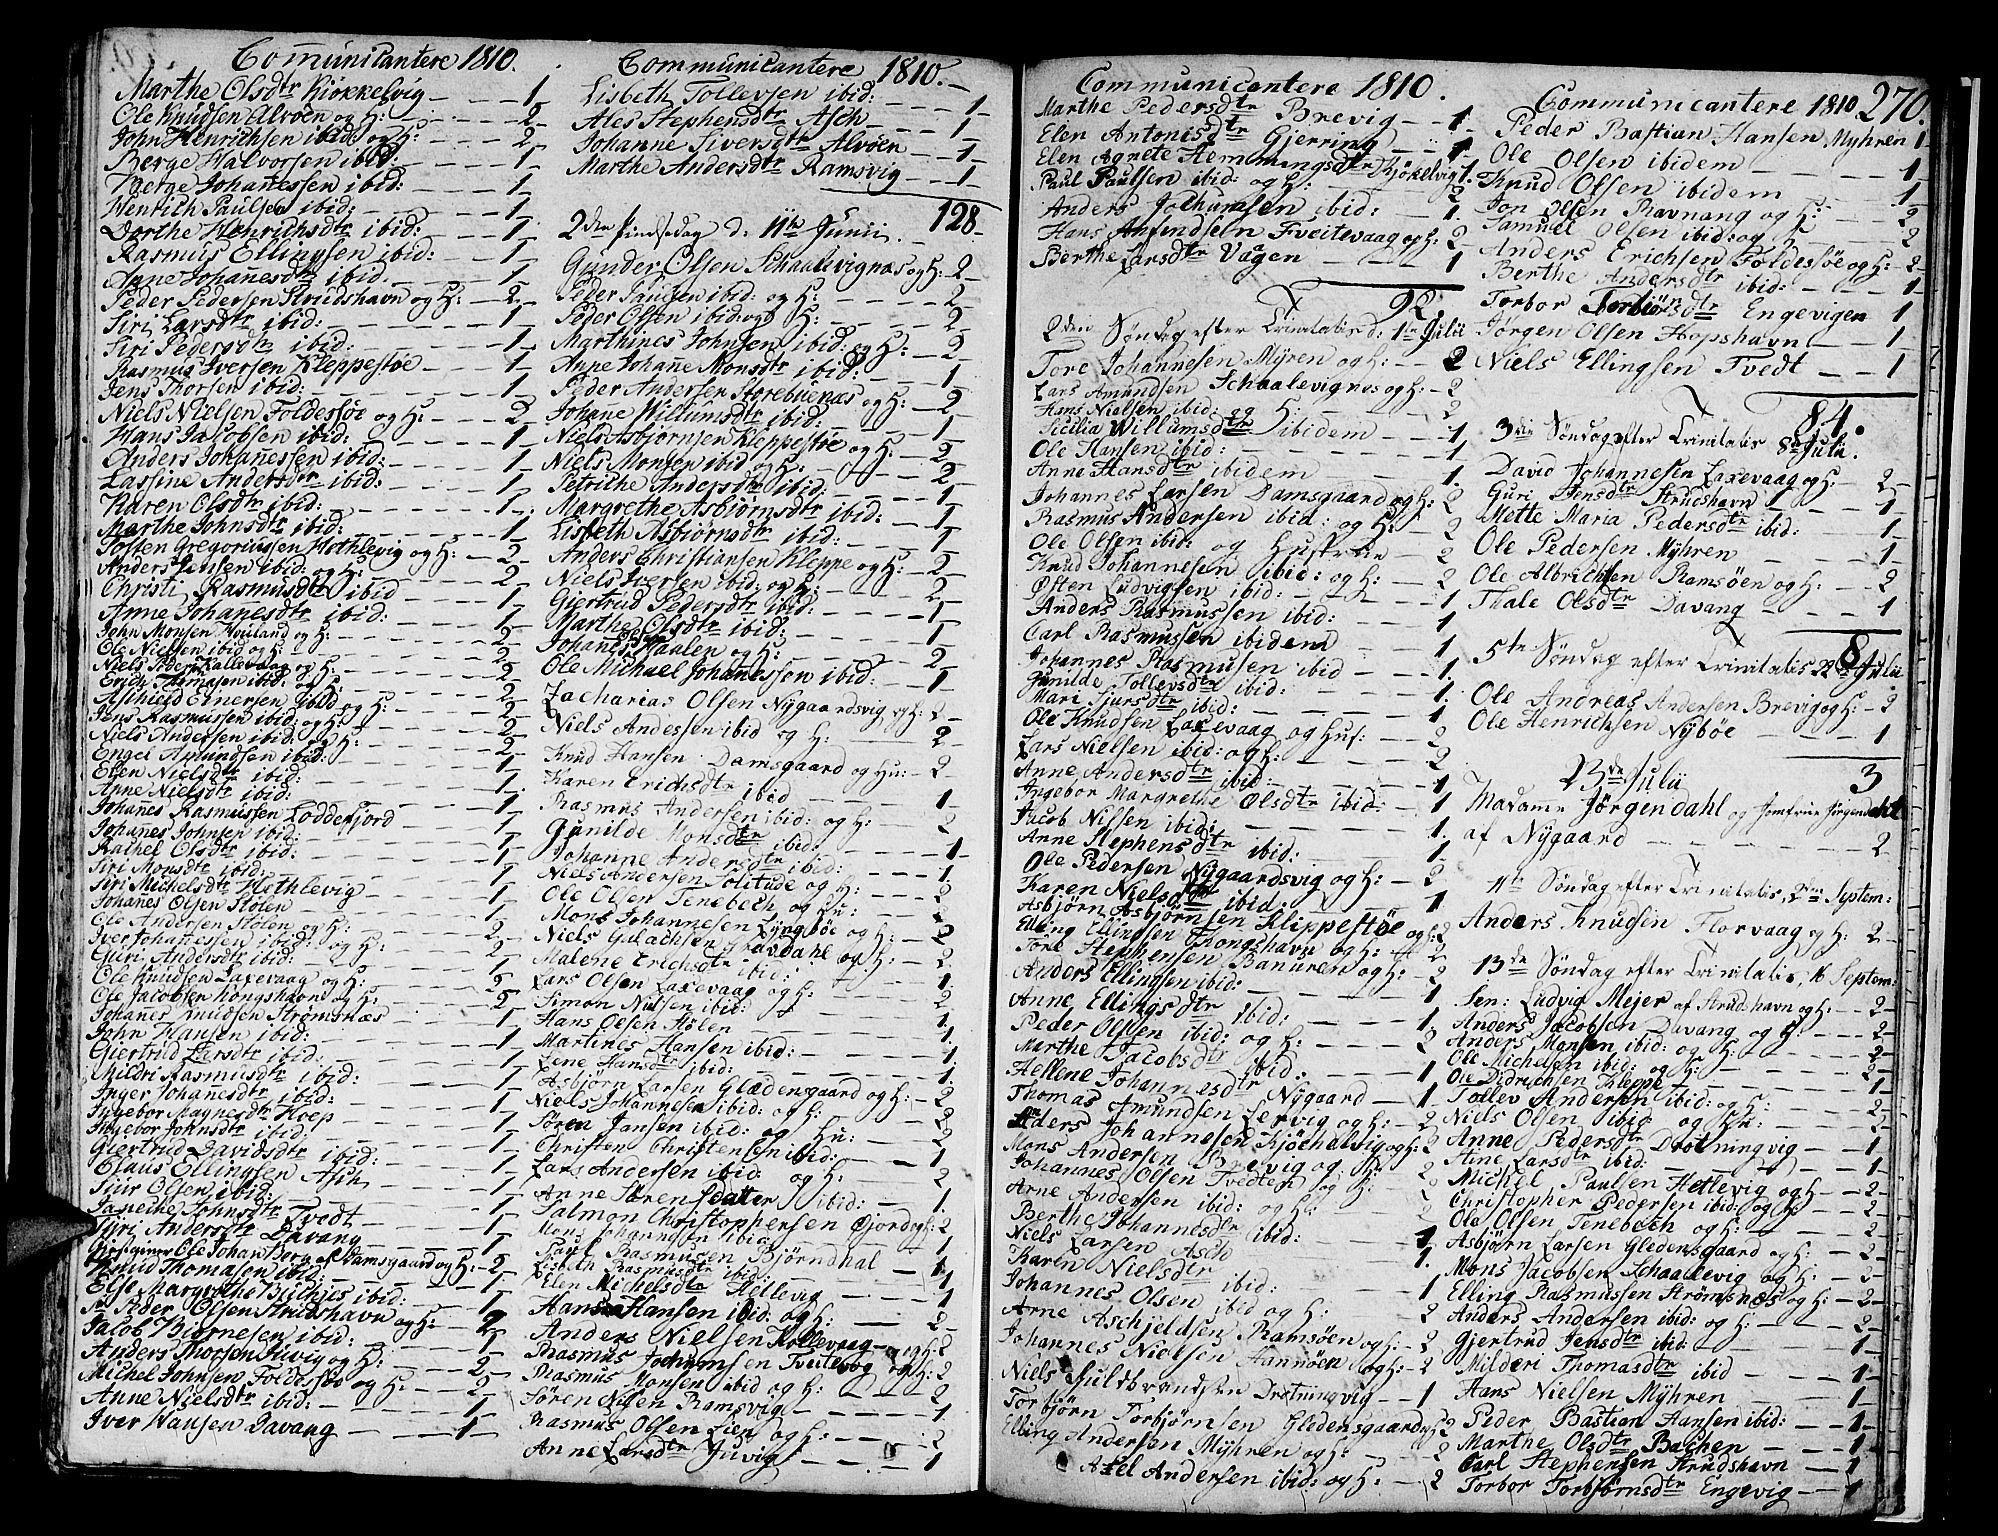 Comunicantere 1810.
Marthe Olsdtr Kiøkkelvig — 1
Ole Knudsen Alvøen og H: — 2
John Henrichsen ibid og H: — 2
Berge Halvorsen ibid: — 1
Berge Johanessen ibid: — 1
Henrich Paulsen ibid: — 1
Dorthe Henrichsdtr ibid: — 1
Rasmus Ellingsen ibid: — 1
Anne Johanesdtr ibid. — 1
Peder Pedersen Strudshavn og H: — 2
Siri Larsdtr ibid: — 1
Siri Pedersdtr ibid: — 1
Rasmus Iversen Kleppestøe — 1
Jens Thorsen ibid: — 1
Niels Nielsen Foldessøe og H: — 2
Hans Jacobsen ibid: — 1
Anders Johanessen ibid: — 1
Lassine Andersdtr ibid: — 1
Karen Olsdtr ibid: — 1
Marthe Johnsdtr ibid: — 1
Tosten Gregoriussen Hethlevig og H: — 2
Anders Jansen ibid: og H: — 2
Christi Rasmusdtr ibid — 1
Anne Johanesdtr ibid: — 1
John Monsen Houland og H: — 2
Ole Nielsen ibid og H: — 2
Niels Peders Kallevaag og H: — 2
Erich Thomasen ibid: og H: — 2
Aschield Einersen ibid — 2
Jens Rasmussen ibid: og H: — 2
Niels Andersen ibid: og H: — 2
Engel Amundsen ibid: — 1
Elen Nielsdtr ibid: — 1
Anne Nielsdtr ibid: — 1
Johanes Rasmussen Loddefjord — 1
Johanes Johnsen ibid: — 1
Rachel Olsdtr ibid: — 1
Siri Monsdtr ibid: — 1
Siri Michelsdtr Hethlevig — 1
Johanes Olsen Stølen — 1
Ole Andersen Stølen og H: — 2
Iver Johanessen ibid: og H: — 2
Guri Andersdtr ibid: — 1
Ole Knudsen Laxevaag og H: — 2
Ole Jacobsen Kongshavn og H: — 2
Johanes Knudsen Strømsnæs — 1
John Hansen ibid: — 1
Giertrud Larsdtr ibid: — 1
Mildri Rasmusdtr ibid: — 1
Inger Johanesdtr ibid: — 1
Ingebor Magnesdtr Hoep — 1
Ingebor Johnsdtr ibid: — 1
Giertrud Davidsdtr ibid: — 1
Claus Ellingsen Asch — 1
Siur Olsen ibid: — 1
Janeche Johnsdtr Tvedt — 1
Siri Andersdtr Davang — 1
Ole Johan Berg af Damsgaard og H: — 2
Knud Thomasen ibid: — 1
Else Margrethe ibid: — 1
Peder Olsen Strudshavn og H: — 2
Jacob Biørnesen ibid: — 1
Anders Morsen Juvig og H: — 2
Michel Johnsen Foldessøe og H: — 2
Anne Nielsdtr ibid: — 1
Iver Hansen Davang — 1
Communicantere 1810.
Lisbeth Tollevsen ibid: — 1
Ales Stephensdtr Asch — 1
Johanne Siversdtr Alvøen — 1
Marthe Andersdtr Ramsvig — 1
128.
2den Pindsedag d: 11te Junii.
Gunder Olsen Schaalevignæs og H: 2
Peder Paulsen ibid: og H: — 2
Peder Olsen ibid: og H: — 2
Marthines Johnsen ibid: og H: — 2
Anne Johane Monsdtr ibid: — 1
Peder Andersen Storebuenæs og H: — 2
Johane Willumsdtr ibid: — 1
Niels Asbjørnsen Kleppestøe og H: — 2
Niels Monsen ibid og H: — 2
Petriche Andersdtr ibid: — 1
Margrethe Asbjørnsdtr ibid: — 1
Lisbeth Asbjørnsdtr ibid: — 1
Anders Christiansen Kleppe og H: — 2
Niels Iversen ibid: og H: — 2
Giertrud Pedersdtr ibid: — 1
Marthe Olsdtr ibid: — 1
Johanes Haalen og H: — 2
Ole Michael Johanessen ibid: — 1
Zacharias Olsen Nygaardsvig og H: 2
Niels Andessen ibid og H: — 2
Knud Hansen Damsgaard og Hu: — 2
Karen Erichsdtr ibid — 1
Rasmus Andersen ibid: og H: — 2
Gunilde Monsdtr ibid: — 1
Johanne Andersdtr ibid: — 1
Niels Andersen Solitude og H: — 2
Ole Olsen Tenebech og Hu: — 2
Mons Johannesen Lyngbøe og H: — 2
Niels Gulachsen Gravdahl og H: — 2
Malene Erichsdtr ibid: — 1
Lars Olsen Laxevaag og H: — 2
Simon Nilsen ibid: — 1
Hans Olsen Stølen — 1
Martines Hansen ibid: — 1
Lene Hansdtr ibid: — 1
Asbjørn Larsen Glædensgaard og H: — 2
Niels Johannesen ibid: og H: — 2
Søren Jansen ibid: og Hu: — 2
Christen Christensen ibid: — 1
Lars Andersen ibid: og H: — 2
Anne Sørensdatter ibid: — 1
Salmon Christophersen Gjorde og H: 2
Mons Johannesen ibid: — 1
Lars Rasmusen Bjørndhal — 1
Lisbeth Rasmusdtr ibid: — 1
Elen Michelsdtr Hetlevig — 1
Hans Hansen ibid: og H: — 2
Anders Nielsen Kallevaag og H: 2
Rasmus Jochumsen Tveitevog og H: 2
Rasmus Monsen ibid og H: — 2
Søren Nilsen Ramsvig — 1
Rasmus Olsen Lien og H: — 2
Anne Larsdtr Juvig — 1
Communicantere 1810.
Marthe Pedersdtr Brevig — 1
Elen Antonisdtr Gjerring — 1
Elen Agnete Hemmingsdtr Kjøkelvig 1.
Paul Paulsen ibid: og H: — 2
Anders Jochumsen ibid: — 1.
Hans Amundsen Tveitevaag og H: 2
Berthe Larsdtr Vågen — 1
92
2den Søndag efter Trinitatis d: 1te Julii
Tore Johannesen Myren og H: 2
Lars Amundsen Schaalevignæs og H: — 2
Hans Nielsen ibid: og H: — 2
Sicilia Willumsdtr ibidem — 1
Ole Hansen ibid: — 1
Anne Hansdtr ibidem — 1.
Johannes Larsen Damsgaard og H: 2
Rasmus Andersen ibid: og H: — 2
Ole Olsen ibid: og Hustrue — 2
Knud Johannesen ibid: og H: — 2
Østen Ludvigsen ibid: — 1
Anders Rasmussen ibid: — 1
Carl Rasmussen ibidem — 1
Johannes Rasmusen ibid: — 1.
Gunilde Tollevsdtr ibid: — 1.
Mari Sjursdtr ibid: — 1
Ole Knudsen Laxevaag og Hus: — 2
Lars Nielsen ibid: og H: — 2
Anne Andersdtr ibid: — 1
Ingebor Margrethe Olsdtr ibid: — 1
Jacob Nilsen ibid: — 1.
Anne Stephensdtr ibid: — 1.
Ole Pedersen Nygaardsvig og H: — 2
Karen Nielsdtr ibid: — 1
Asbjørn Asbjørnsen Klippestøe og H: 2
Elling Ellingsen Kongshavn og H: — 2
Tore Stephensen Banuren og H: — 2
Anders Ellingsen ibid: — 1
Anne Ellingsdtr ibid: — 1.
Peder Olsen ibid: og H: — 2
Marthe Jacobsdtr ibid. — 1
Hellene Johannesdtr Nygaard — 1
Thomas Amundsen Lervig og H: — 2
Anders Johannesen Kjøchelvig og H: 2
Mons Andersen Brevig og H: 2
Johannes Olsen Tvedten og H: 2
Arne Andersen ibid: og H: 2
Berthe Johannesdtr ibid: — 1
Niels Larsen Asch — 1.
Karen Nielsdtr ibid: — 1
Johannes Olsen ibid og H: 2
Arne Aschjeldsen Ramsøen og H: — 2
Johannes Nielsen Hannøen og H: — 2
Niels Huldbrandsen Drotningvig — 1
Torbjørn Torbjørnsen Gledensgaard og H 2
Elling Andersen Myhren og H: — 2
Axel Andersen ibid: og H: — 2
Communicantere 1810 270.
Peder Bastian Hansen Myhren 1
Ole Olsen ibidem — 1
Knud Olsen ibidem — 1
Jon Olsen Ravnang og H: — 2
Samuel Olsen ibid: og H: — 2
Anders Erichsen Foldessøe og H: — 2
Berthe Andersdtr ibid: — 1
Torbor Torbiørsdtr Engevigen 1
Jørgen Olsen Hopshavn — 1
Niels Ellingsen Tvedt — 1
84.
3die Søndag efter Trinitatis 8de Julii.
David Johannesen Laxevaag og H: 2
Guri Jensdtr Strudshavn — 1
Mette Maria Pedersdtr ibid: — 1
Ole Pedersen Myhren — 1
Ole Albrichtsen Ramsøen og H: — 2
Thale Olsdtr Davang — 1
8
5te Søndag efter Trinitatis 22de Julii.
Ole Andreas Andersen Brevig og H: — 2
Ole Henrichsen Nybøe — 1
3
23de Julii
Madame Jørgen Dahl og Jomfrue Jørgen Dahl
af Nygaard — 2
11te Søndag efter Trinitatis, 2den Septem:
Anders Knudsen Florvaag og H: — 2
13de Søndag efter Trinitatis, 16 Septem:
Sen: Ludvig Mejer af Strudshavn og H: — 2
Anders Jacobsen Davang og H: — 2
Anders Hansen ibid: og H: — 2
Ole Michelsen ibid: og H: — 2
Ole Didrichsen Kleppe — 1
Tollev Andersen ibid: og H: — 2
Niels Olsen ibid og Hu: — 2
Anne Pedersdtr Drotningvig — 1
Stine Larsdtr ibid: — 1
Michel Paulsen Hetlevig og H — 2
Christopher Pedersen ibid: og H: — 2
Ole Olsen Tenebech og H: — 2
Asbjørn Larsen Gledensgaard og H: — 2
Mons Jacobsen Schaalevig og H: — 2
Elling Rasmussen Strømsnæs og H: — 2
Anders Andersen ibid: og H: — 2
Gjertrud Jensdtr ibid: — 1
Milderi Thomasdtr ibid — 1
Hans Nielsen Myhren — 1
Peder Bastian Hansen ibid: — 1
Marthe Olsdtr Bachen — 1
Carl Stephensen Strudshavn — 1
Torbor Torbjørnsdtr Engevig — 1